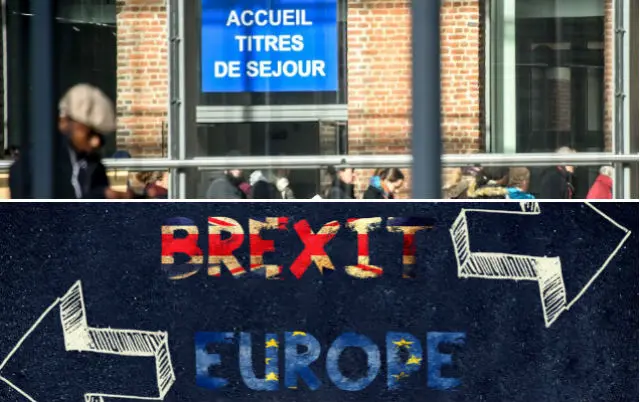 ACCUEIL
TITRES
DE SEJOUR
BREXIT
EUROPE